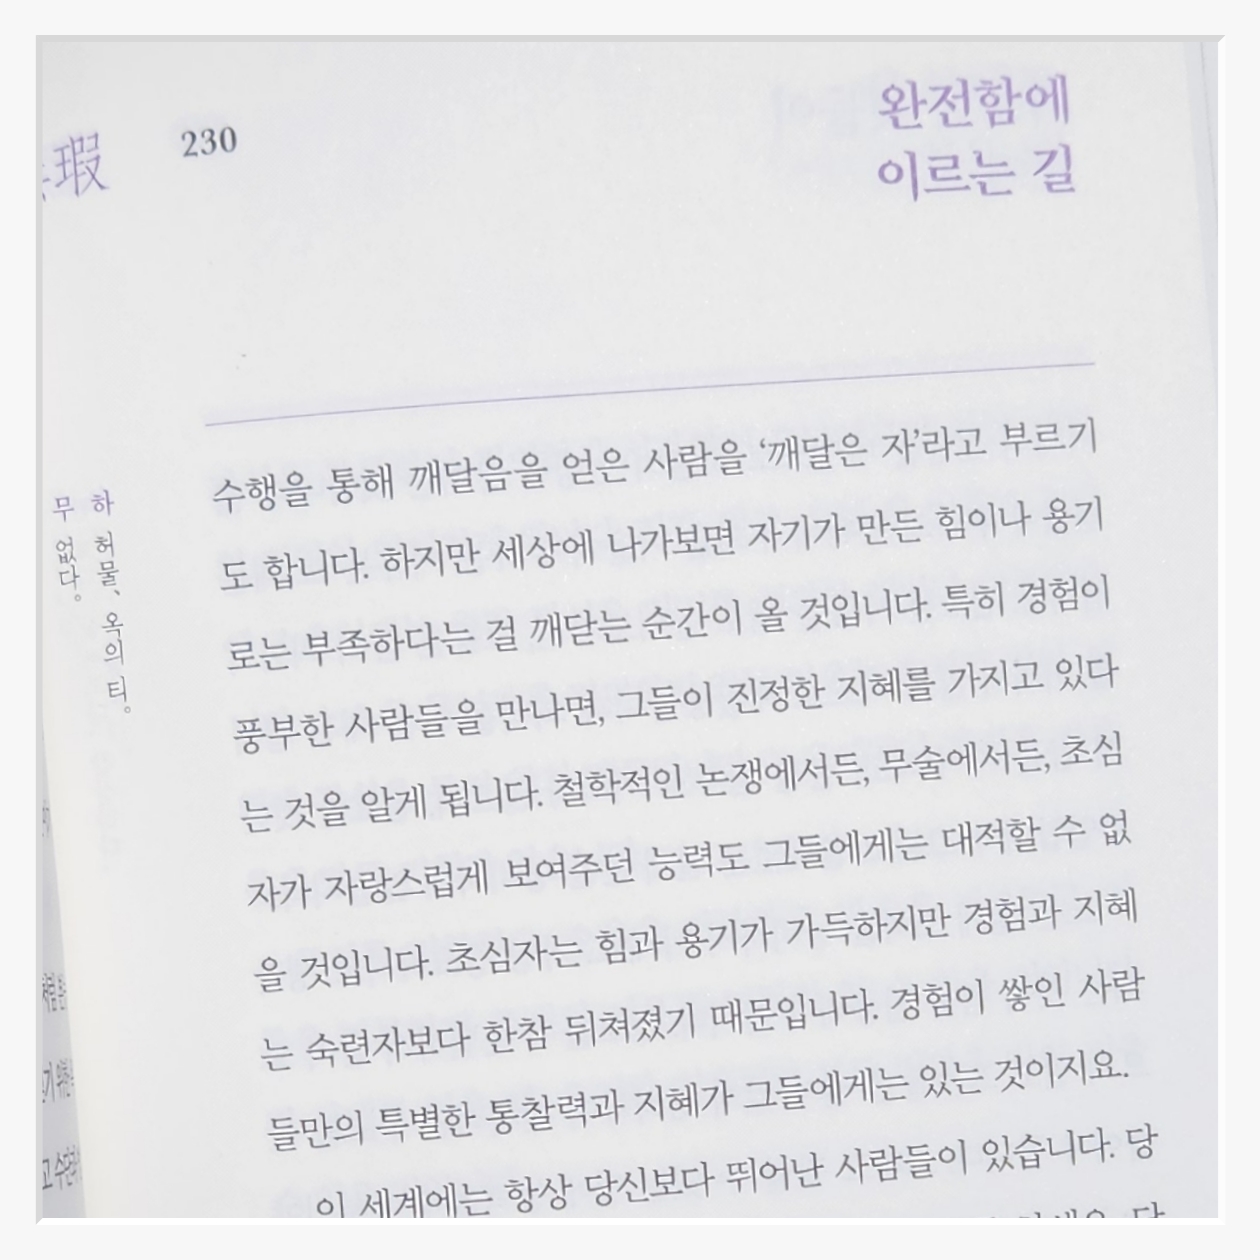 瑕
230
완전함에
이르는 길
하 허물, 옥의 티。
무 없다。
수행을 통해 깨달음을 얻은 사람을 ‘깨달은 자’라고 부르기
도 합니다. 하지만 세상에 나가보면 자기가 만든 힘이나 용기
로는 부족하다는 걸 깨닫는 순간이 올 것입니다. 특히 경험이
풍부한 사람들을 만나면, 그들이 진정한 지혜를 가지고 있다
는 것을 알게 됩니다. 철학적인 논쟁에서든, 무술에서든, 초심
자가 자랑스럽게 보여주던 능력도 그들에게는 대적할 수 없
을 것입니다. 초심자는 힘과 용기가 가득하지만 경험과 지혜
는 숙련자보다 한참 뒤쳐졌기 때문입니다. 경험이 쌓인 사람
들만의 특별한 통찰력과 지혜가 그들에게는 있는 것이지요.
이 세계에는 항상 당신보다 뛰어난 사람들이 있습니다. 당